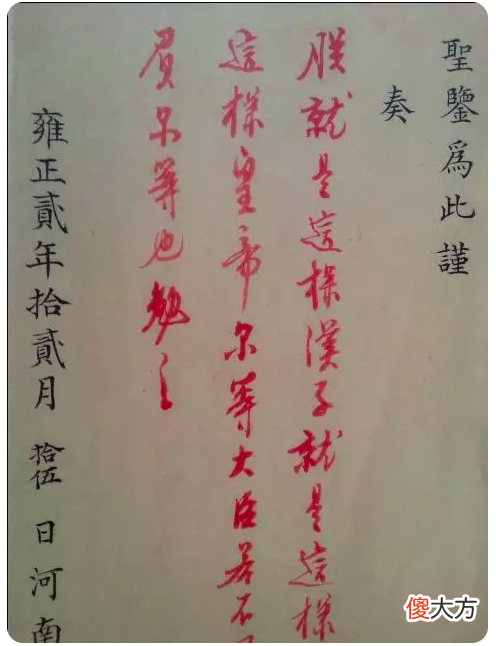 聖鑒爲此謹
奏
朕就是這樣漢子就是這樣
這樣皇帝尔等大臣若不
負尔等也勉之
雍正貳年拾貳月拾伍日河南
傻大方